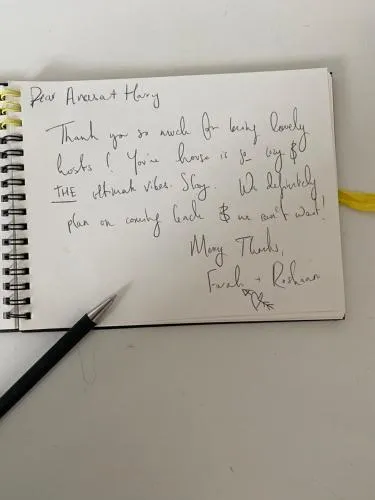 Dear Anessa + Harry
Thank you so much for being lovely
hosts! You're house is so cosy &
THE ultimate vibes. Slay. We definitely
plan on coming back & we can't wait!
Many Thanks,
Farah + Roshaan